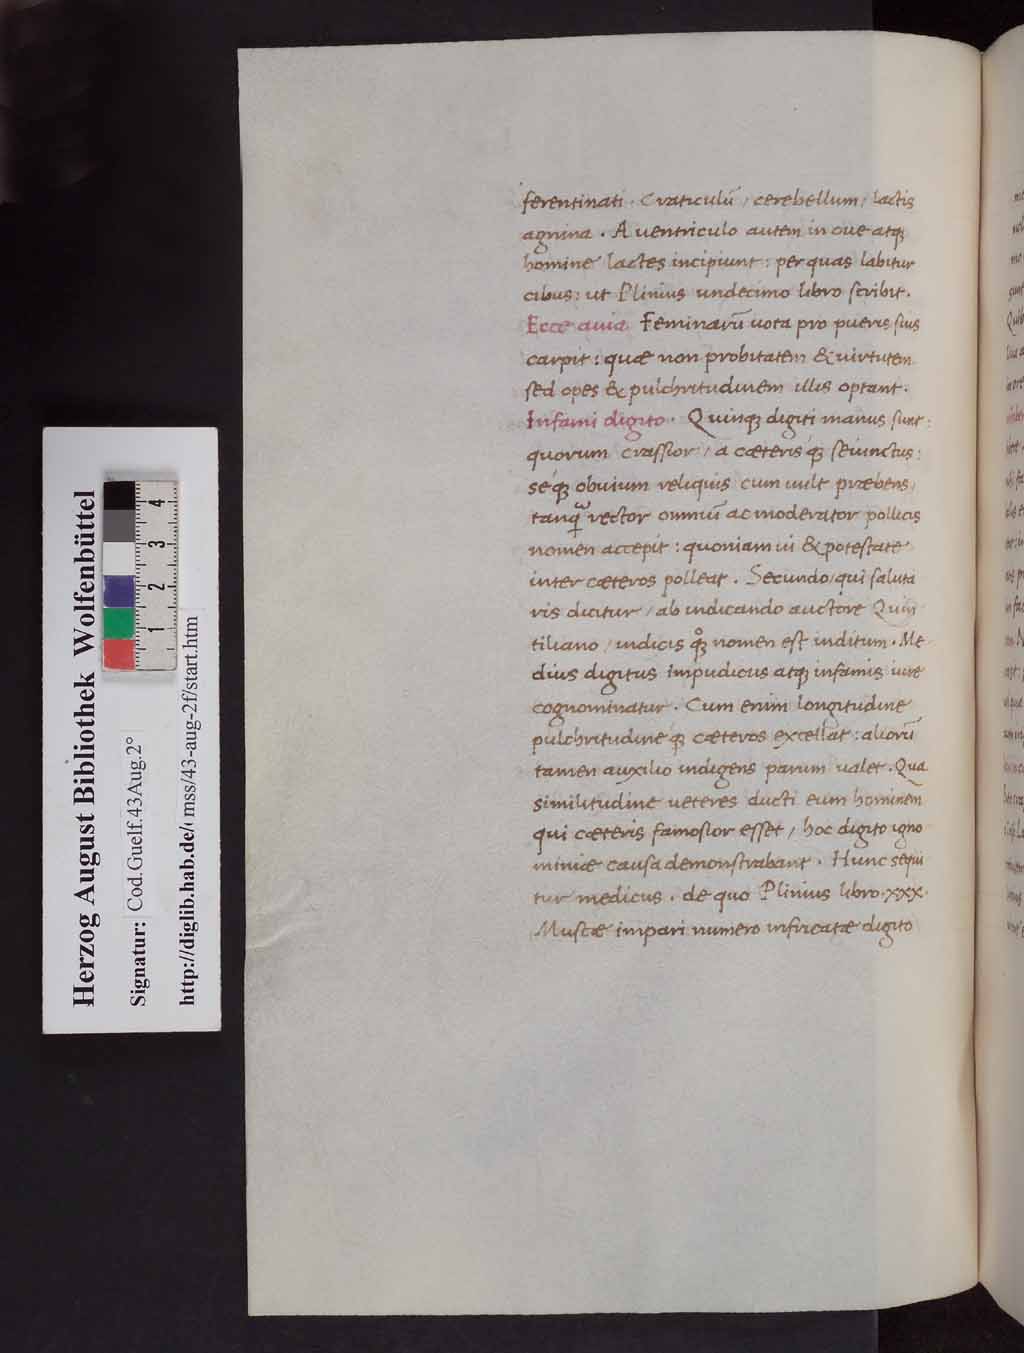 ferentinati. Craticulū / cerebellum / lactis
agnina. A uentriculo autem in oue atq;
homine lactes incipiunt: per quas labitur
cibus: ut Plinius undecimo libro scribit.
Ecce auia. Feminarū uota pro pueris suis
carpit: quæ non probitatem & uirtutem
sed opes & pulchritudinem illis optant.
Infami digito. Quinq; digiti manus sunt:
quorum crassior / a cæterisq; seiunctus:
seq; obuium reliquis cum uult præbens /
tanq̃ rector omniū ac moderator pollicis
nomen accepit: quoniam ui & potestate
inter cæteros polleat. Secundo / qui saluta
ris dicitur / ab indicando auctore Quin
tiliano / indicis qͦꝫ nomen est inditum. Me
dius digitus impudicus atq; infamis iure
cognominatur. Cum enim longitudine
pulchritudineq; cæteros excellat: aliorū
tamen auxilio indigens parum ualet. Qua
similitudine ueteres ducti eum hominem
qui cæteris famosior esset / hoc digito igno
miniæ causa demonstrabant. Hunc sequi
tur medicus. de quo Plinius libro. xxx.
Muscæ impari numero infricatæ digito
Herzog August Bibliothek Wolfenbüttel
Signatur: Cod.Guelf.43Aug.2°
http://diglib.hab.de/ mss/43-aug-2f/start.htm
1 2 3 4